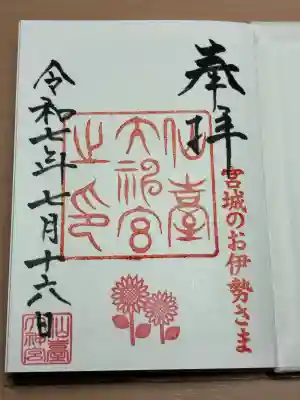 奉拝
宮城のお伊勢さま
仙臺
大神宮
之印
令和七年七月十六日
仙臺
大神宮